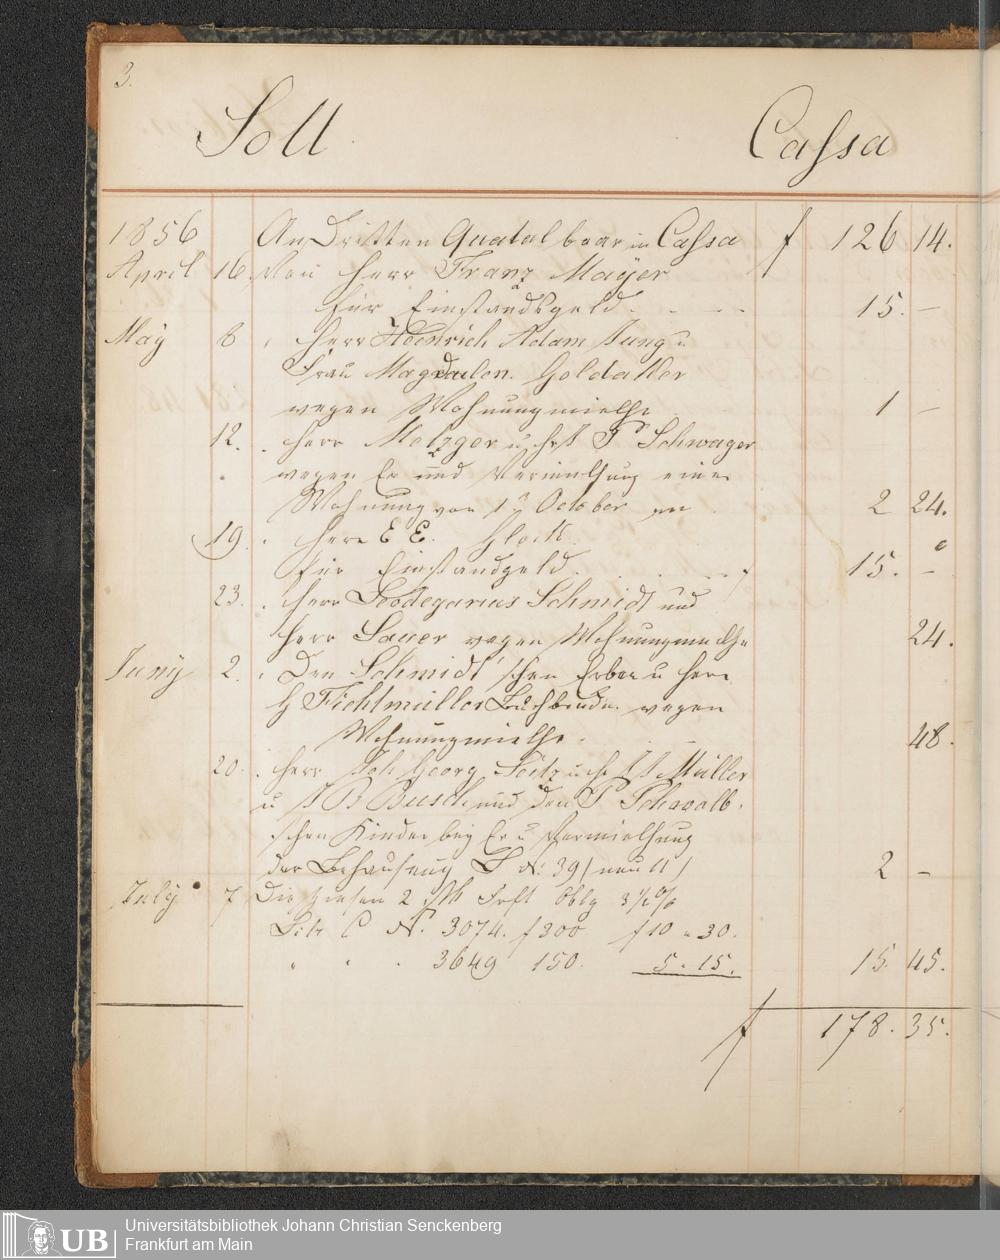 3.
Soll Cassa
1856 An Dritten Quatal baar in Cassa f 126 14.
April 16. Von Herr Franz Mayer
für Einstandsgeld. 15. –
May 8 . Herr Heinrich Adam Jung u
Frau Magdalen. Goldatter
wegen Wohnungmiethe 1 –
12. . Herr Metzger u P Schwager
wegen Er und Vermiethung einer
Wohnung von 1n October an 2 24.
19. . Herr E E. Glock.
für Einstandgeld. 15. –
23. . Herr Leodegarius Schmidt und
Herr Sauer wegen Wohnungmiethe 24.
Juny 2. . Den Schmidt'schen Erben u Herr
H Fichtmüller Buchbinder wegen
Wohnungmiethe. 48.
20. . Herr Joh Georg Seitz u Müller
u J B Busch und den P Schwalb.
schen Kinder bey Er u Vermiethung
der Behausung L N: 39 (neu 11) 2 –
July 7 Die Zinsen 2 Frft Oblg 3 1/2 %
Litr C N. 3074. f 300 f 10 " 30.
" " . 3649 150. 5. 15. 15 45.
f 178. 35.
Universitätsbibliothek Johann Christian Senckenberg
Frankfurt am Main
UB